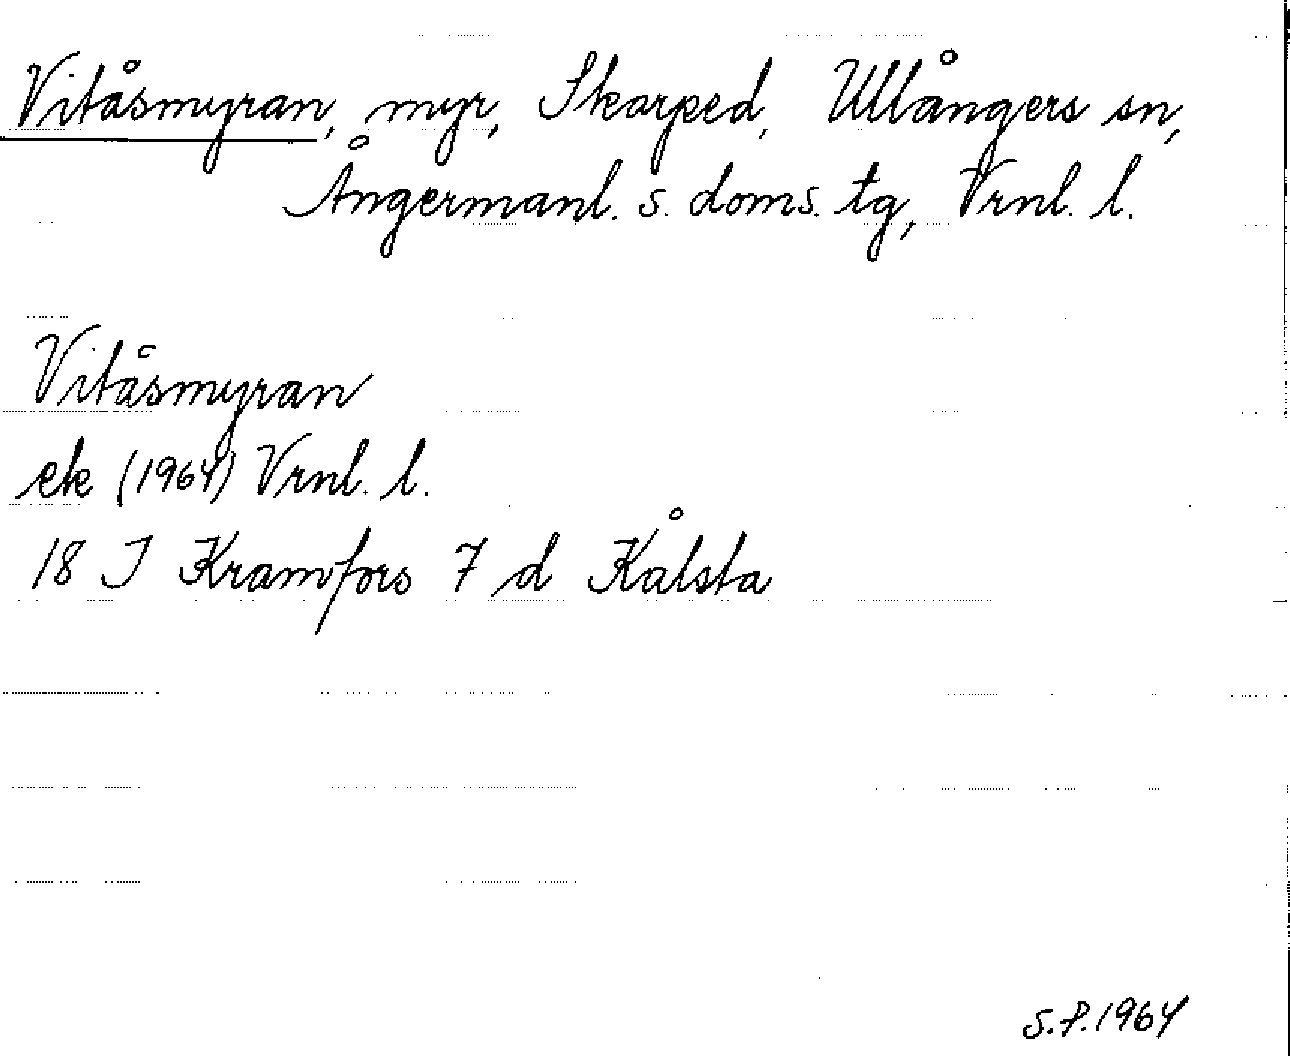 Vitåsmyran, myr, Skarped, Ullångers sn,
Ångermanl. s. doms. tg, Vrnl. l.
Vitåsmyran
ek (1964) Vrnl. l.
18 I Kramfors 7 d Kålsta
S.P.1964